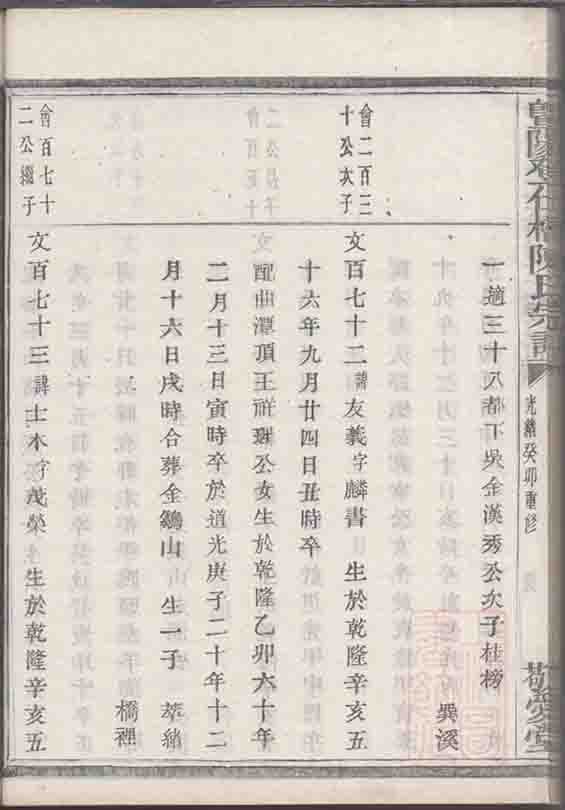 暨陽 石橋陳氏宗譜
光緒癸卯重修
敬愛堂
一適三十八都下吳金漢秀公次子桂榜
巽溪
會二百三
十公次子
文百七十二諱友義字麟書 生於乾隆辛亥五
十六年九月廿四日丑時卒
配曲潭頂王祥 公女生於乾隆乙卯六十年
二月十三日寅時卒於道光庚子二十年十二
月十六日戌時合葬金鷄山 生一子 萃緒
橋裡
會百七十
二公繼子
文百七十三諱士木字茂榮 生於乾隆辛亥五